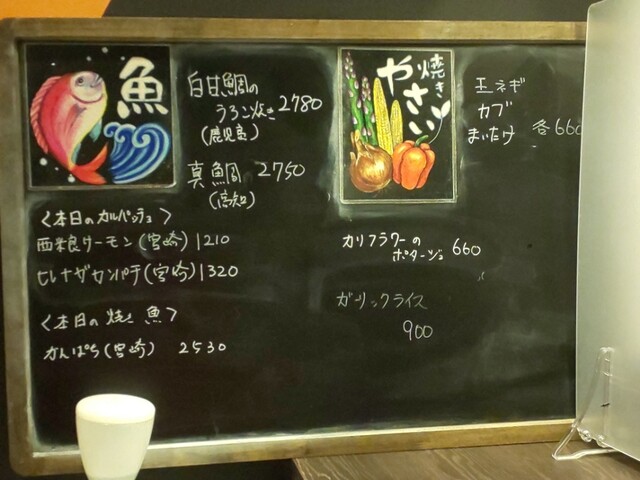 魚
白甘鯛の
うろこ焼き 2780
(鹿児島)
真鯛 2750
(高知)
〈本日のカルパッチョ〉
西米良サーモン(宮崎) 1210
ヒレナガカンパチ(宮崎) 1320
〈本日の焼き魚〉
かんぱち(宮崎) 2530
焼き
やさい
玉ネギ
カブ
まいたけ 各660
カリフラワーの
ポタージュ 660
ガーリックライス
900